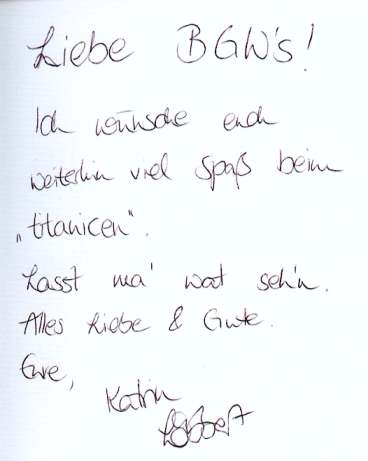 Liebe BGW's!
Ich wünsche euch
weiterhin viel Spaß beim
„titanicen“.
Lasst ma' wat seh'n.
Alles Liebe & Gute.
Eure,
Katrin